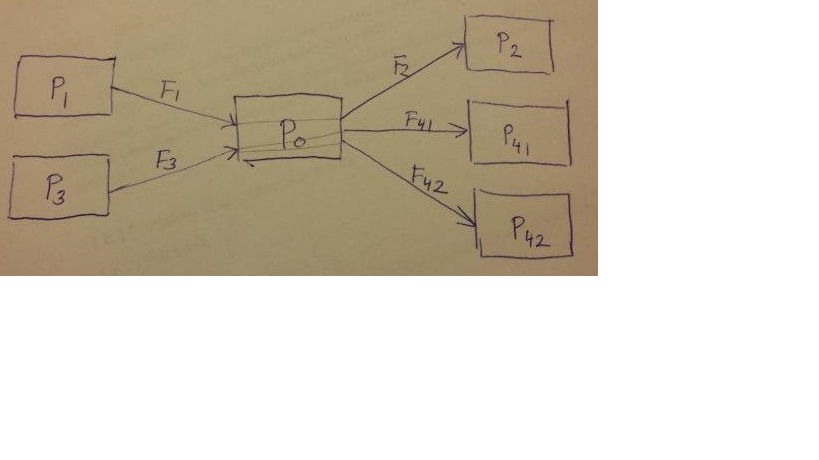 P1
F1
P3
F3
P0
F2
P2
F41
P41
F42
P42